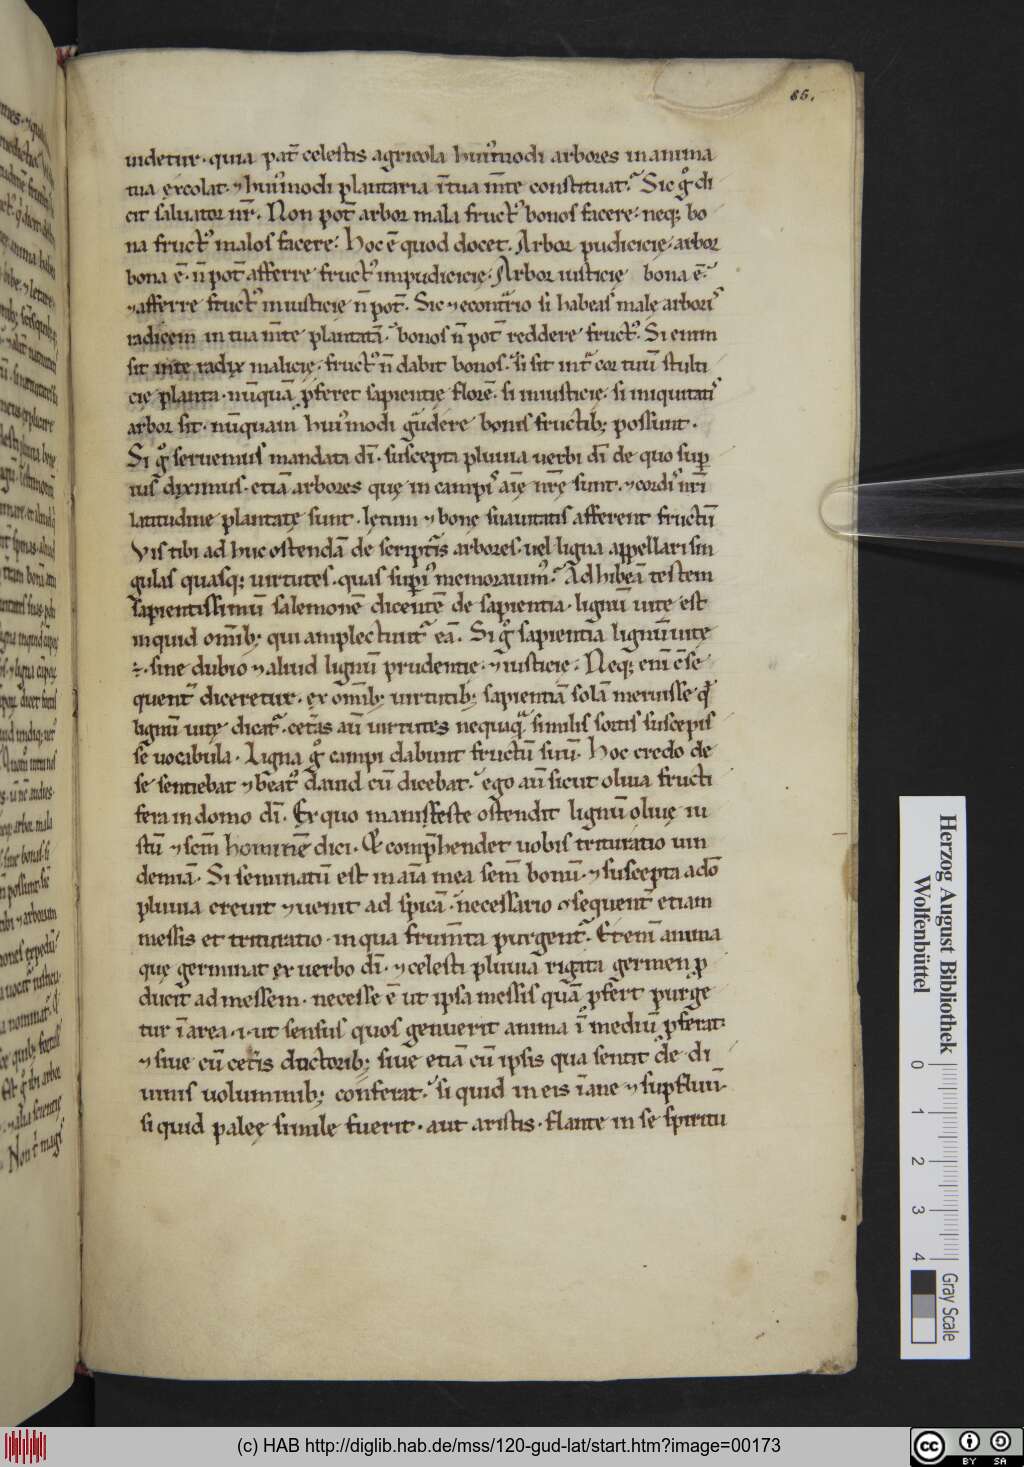 85.
uidetur · quia pat̄ celestis agricola hui᷒modi arbores in anima
tua excolat · ⁊ hui᷒modi plantaria ītua m̄te constituat. Sic gͦ di
cit saluator nr̄. Non pot̄ arbor mala fruct᷒ bonos facere · neq; bo
na fruct᷒ malos facere. Hoc ē quod docet. Arbor pudicicię · arbor
bona ē · n̄ pot̄ afferre fruct᷒ impudicicię. Arbor iusticię bona ē ·
⁊ afferre fruct᷒ iniusticię n̄ pot̄. Sic ⁊ econtͣrio si habeas malę arboris
radicem in tua m̄te plantatā · bonos n̄ pot̄ reddere fruct᷒. Si enim
sit inte radix malicię · fruct᷒ n̄ dabit bonos. si sit intͣ cor tuū stulti
cię planta · nūquā ꝓferet sapientie florē. si iniusticie. si iniquitatis
arbor sit · nūquam hui᷒modi gaudere bonis fructib; possunt.
Si gͦ seruemus mandata dī · suscepta pluuia uerbi dī de quo sup̄
ius diximus · etiā arbores quę in campis aīę nr̄ę sunt · ⁊ cordis nr̄i
latitudine plantatę sunt · lętum ⁊ bonę suauitatis afferent fructū
Vis tibi ad huc ostendā de scriptis arbores · uel ligna appellari sin
gulas quasq; uirtutes · quas sup̄i᷒ memorauim᷒. Adhibeā testem
sapientissimū salemonē dicentē de sapientia · lignū uite est
inquid om̄ib; qui amplectunt̄ eā. Si gͦ sapientia lignū uitę
÷ · sine dubio ⁊ aliud lignū prudentie · ⁊ iusticie. Neq; eni c̄se
quent̄ diceretur · ex om̄ib; uirtutib; sapientiā solā meruisse qd̄
lignū uitę dicat̄ · cet̄as aū uirtutes nequaqͣ similis sortis suscepis
se uocabula. Ligna gͦ campi dabunt fructū suū. Hoc credo de
se sentiebat ⁊ beat᷒ dauid cū dicebat. ego aū sicut oliua fructi
fera in domo dī. Ex quo manifeste ostendit lignū oliuę iu
stū ⁊ scm̄ hominē dici. Et comp̄hendet uobis trituratio uin
demiā. Si seminatū est in aīa mea sem̄ bonū · ⁊ suscepta ad dō
pluuia creuit ⁊ uenit ad spicā · necessario ↄsequent̄ etiam
messis et trituratio · in qua frum̄ta purgent̄. Eteni anima
quę germinat ex uerbo dī · ⁊ celesti pluuia rigata germen ꝓ
ducit ad messem · necesse ē ut ipsa messis quā ꝓfert purge
tur ī area · i · ut sensus quos genuerit anima ī mediū ꝓferat
⁊ siue cū cet̄is doctorib; siue etiā cū ipsis qua sentit de di
uinis uoluminib; conferat. si quid in eis īane ⁊ supfluū ·
si quid palęe simile fuerit · aut aristis · flante in se spiritu
Herzog August Bibliothek
Wolfenbüttel
0 1 2 3 4
Gray Scale
(c) HAB http://diglib.hab.de/mss/120-gud-lat/start.htm?image=00173
cc BY SA